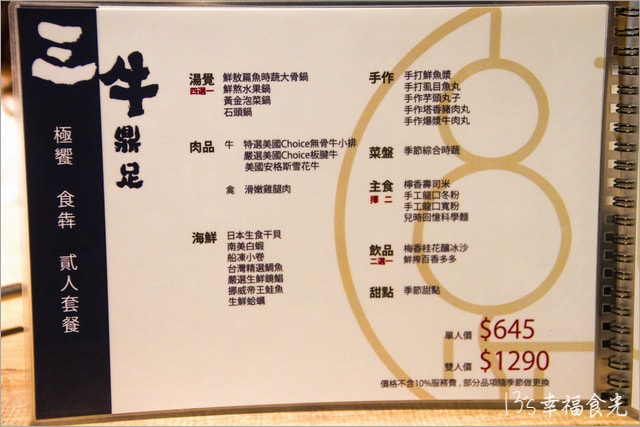 三牛鼎足
極饗 食犇 貳人套餐
湯覺 四選一
鮮敖扁魚時蔬大骨鍋
鮮熬水果鍋
黃金泡菜鍋
石頭鍋
肉品
牛 特選美國Choice無骨牛小排
嚴選美國Choice板腱牛
美國安格斯雪花牛
禽 滑嫩雞腿肉
海鮮
日本生食干貝
南美白蝦
船凍小卷
台灣精選鯛魚
嚴選生鮮鯛鰏
挪威帝王鮭魚
生鮮蛤蠣
手作
手打鮮魚漿
手打虱目魚丸
手作芋頭丸子
手作塔香豬肉丸
手作爆漿牛肉丸
菜盤 季節綜合時蔬
主食 擇二
檸香壽司米
手工龍口冬粉
手工龍口寬粉
兒時回憶科學麵
飲品 二選一
梅香桂花釀冰沙
鮮搾百香多多
甜點 季節甜點
單人價 $645
雙人價 $1290
價格不含10%服務費,部分品項隨季節做更換
13's幸福食光